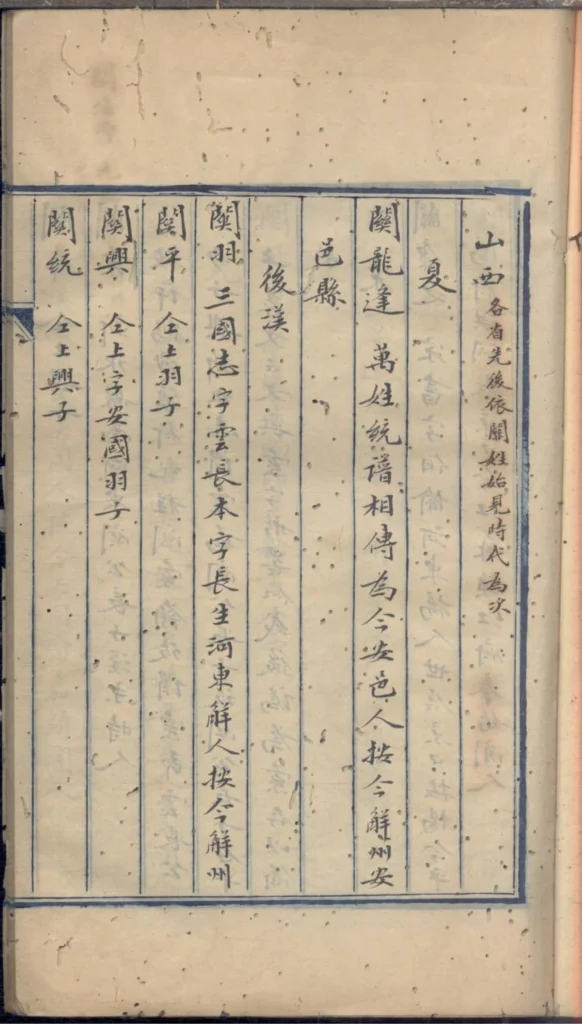 山西 各省先後依關姓始見時代為次
夏
關龍逢 萬姓統譜相傳為今安邑人按今解州安
邑縣
後漢
關羽 三國志字雲長本字長生河東解人按今解州
關平 仝上羽子
關興 仝上字安國羽子
關統 仝上興子